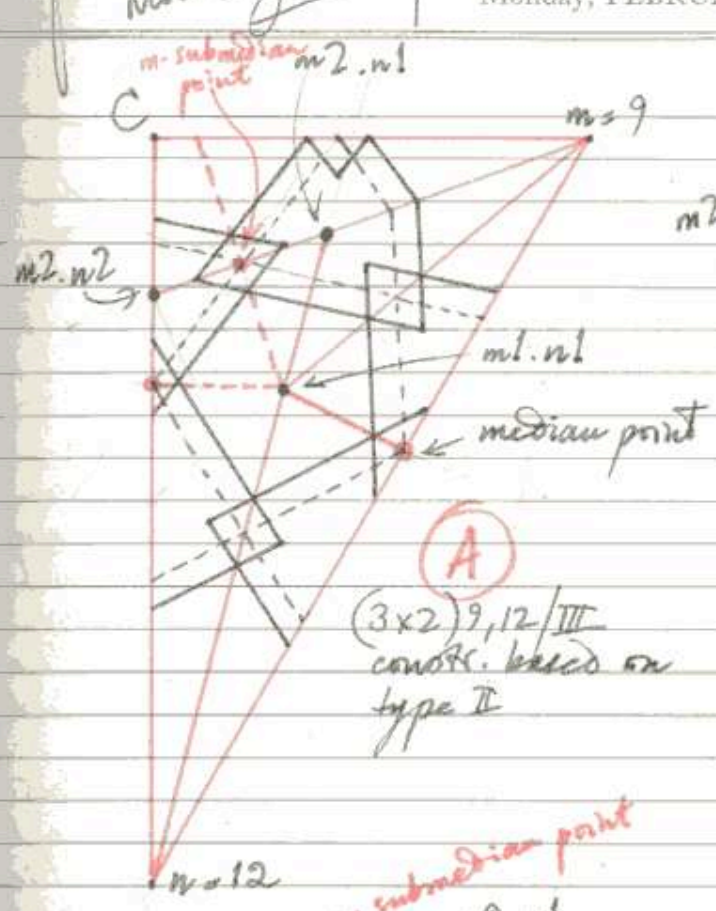 Monday, FEBRU
m-submedian
point
m2.n1
C
m = 9
m2
m2.n2
m1.n1
median point
A
(3x2)9,12/III
constr. based on
type II
n = 12
submedian point